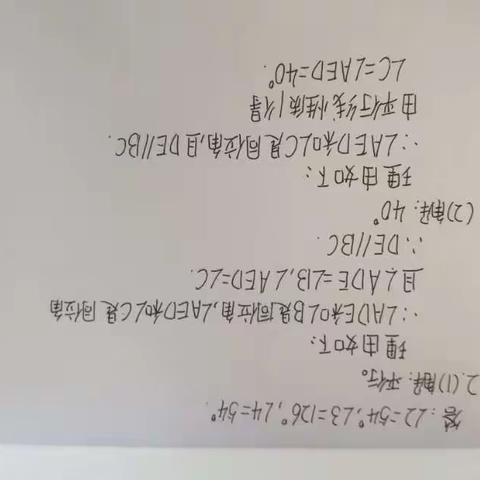 答:∠2=54°,∠3=126°,∠4=54°
2.(1)解:平行。
理由如下:
∵∠ADE和∠B是同位角,∠AED和∠C是同位角
且∠ADE=∠B,∠AED=∠C.
∴DE//BC.
(2)解:40°
理由如下:
∵∠AED和∠C是同位角,且DE//BC.
由平行线性质1得
∠C=∠AED=40°.